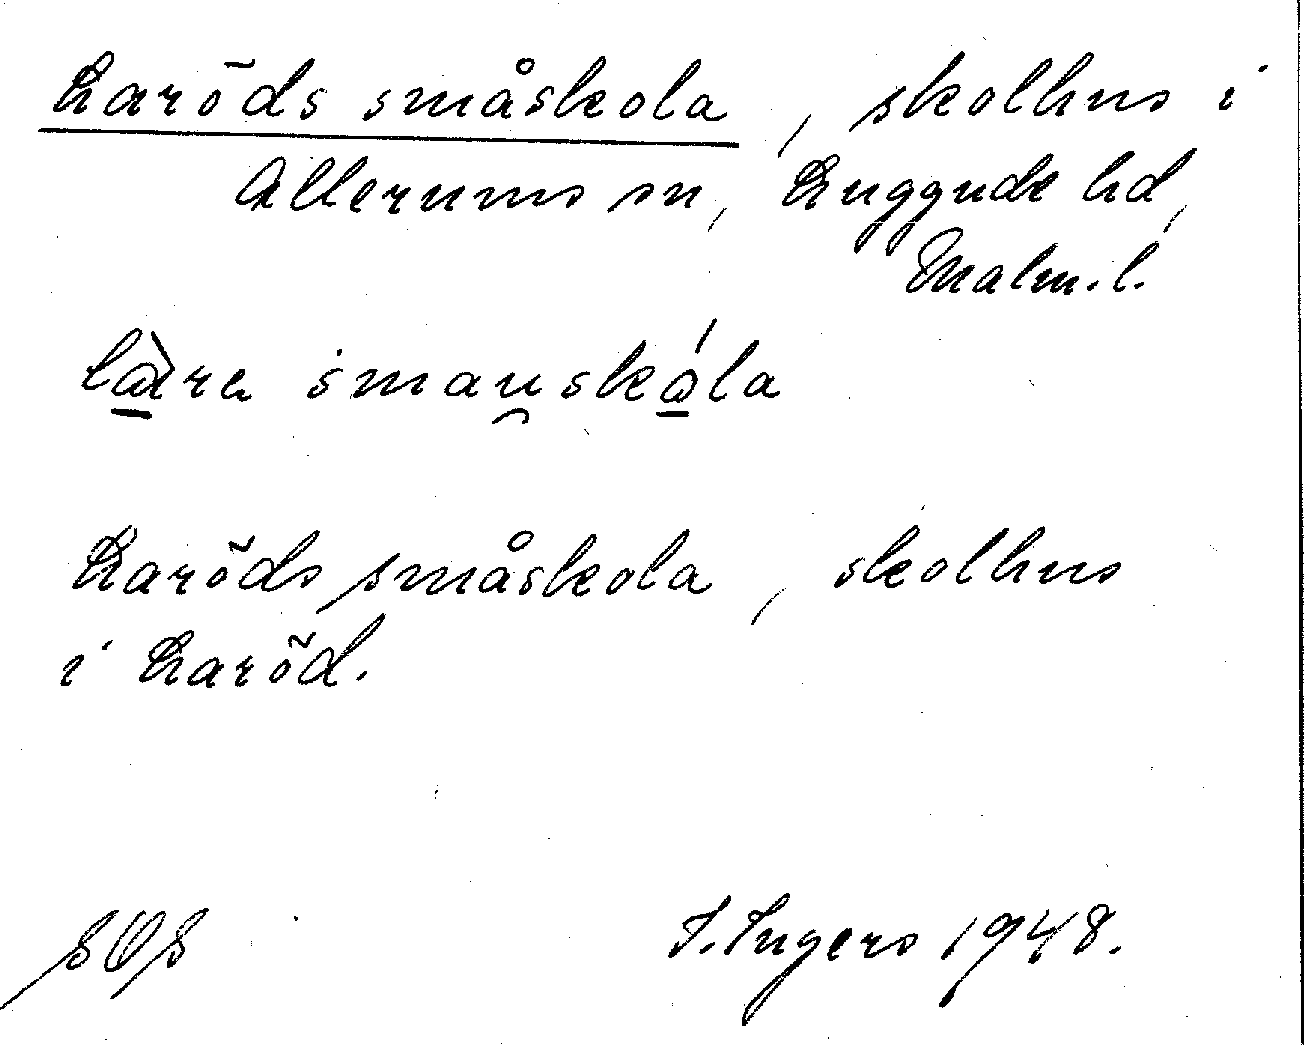 Laröds småskola, skolhus i
Allerums sn, Luggude hd,
Malm.l.
småuskola
Laröds småskola, skolhus
i Laröd.
I. Ingers 1948.